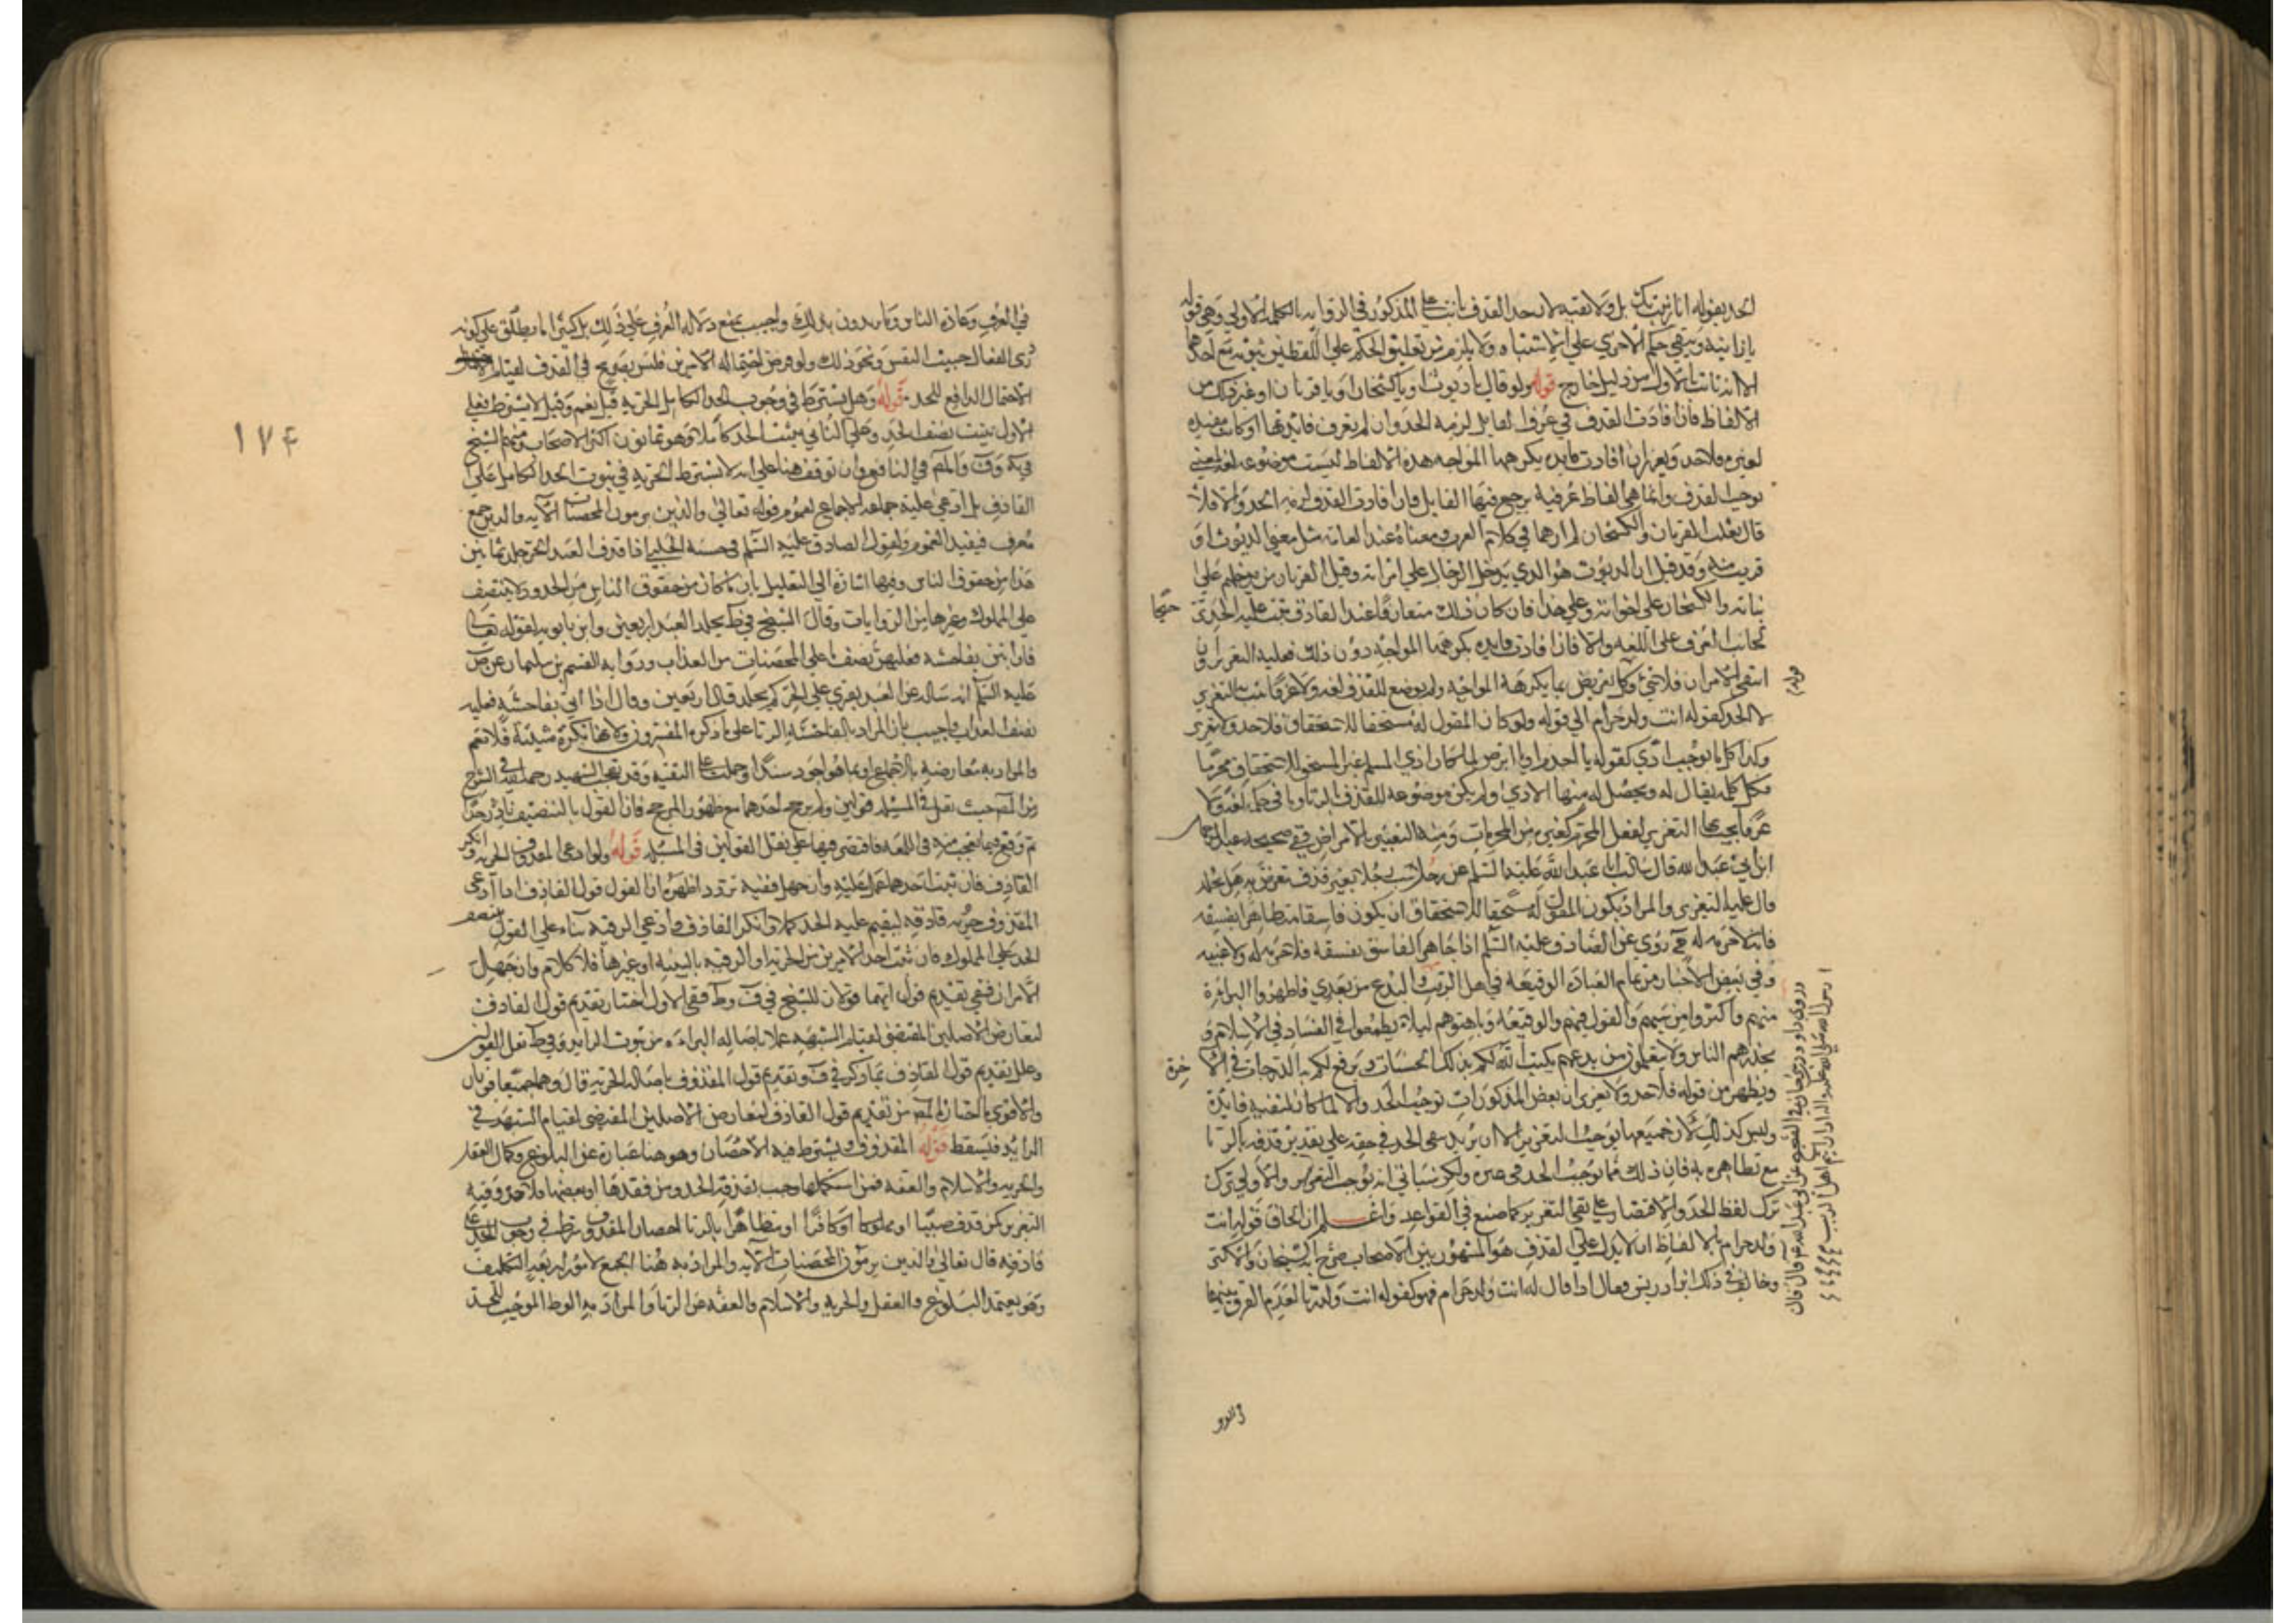 الحد بقوله انا زنيت بك بل ولا نفيه لان حد القذف ثابت على المذكور في الرواية بالكلمة الاولى وهي قوله
يا زانية ويبقى حكم الاخرى على الاشتباه ولا يلزم من تعليق الحكم على اللفظين ثبوته مع احدهما
الا ان ثابت الاول من دليل خارج قوله ولو قال يا ديوث او يا كشخان او يا قرنان او غير ذلك من
الالفاظ فان افادت القذف في عرف القايل لزمه الحد وان لم يعرف فايدتها او كانت مفيدة
لغيره فلا حد ويعزر ان افادت فايدة يكرهها المواجه هذه الالفاظ ليست موضوعة لغة لمعنى
يوجب القذف وانما هي الفاظ عرفية يرجع فيها الى القايل فان افادت القذف لزمه الحد والا فلا
قال ثعلب القرنان والكشخان لم ارهما في كلام العرب ومعناه عند العامة مثل معنى الديوث او
قريب منه وقد قيل ان الديوث هو الذي يدخل الرجال على امراته وقيل القرنان من يدخلهم على
بناته والكشخان على اخواته وعلى هذا فان كان ذلك متعارفا عند القاذف ثبت عليه الحد تر
جيحا
لجانب العرف على اللغة والا فان افادت فايدة يكرهها المواجه دون ذلك فعليه التعزير وان
انتفى الامران فلا شيء وكل تعريض بما يكرهه المواجه ولم يوضع للقذف لغة ولا عرفا يثبت به التعزير
قوله
لا الحد كقوله انت ولد حرام الى قوله ولو كان المقول له مستحقا للاستخفاف فلا حد ولا تعزير
وكذا كل ما يوجب اذى كقوله يا اجذم او يا ابرص لما كان اذى المسلم غير المستحق للاستخفاف محرما
فكل كلمة يقال له ويحصل له منها الاذى ولم يكن موضوعة للقذف بالزنا وما في حكمه لغة ولا
عرفا يجب بها التعزير لفعل المحرم كغيره من المحرمات ومنه التعيير بالامراض وفي صحيحة عبد الرحمن
ابن ابي عبد الله قال سالت ابا عبد الله عليه السلم عن رجل سب رجلا بغير قذف تعرض به هل يجلد
قال عليه التعزير والمراد بكون المقول له مستحقا للاستخفاف ان يكون فاسقا متظاهرا بفسقه
فانه لا حرمة له ح روي عن الصادق عليه السلم اذا جاهر الفاسق بفسقه فلا حرمة له ولا غيبة
وفي بعض الاخبار من تمام العبادة الوقيعة في اهل الريب والبدع من بعدي فاظهروا البراءة
منهم واكثروا من سبهم والقول فيهم والوقيعة وباهتوهم ليلا يطمعوا في الفساد في الاسلام و
يحذرهم الناس ولا يتعلمون من بدعهم يكتب الله لكم بذلك الحسنات ويرفع لكم به الدرجات في الا
خرة
ويظهر من قوله فلا حد ولا تعزير ان بعض المذكورات توجب الحد والا لما كان لنفيه فايدة
وليس كذلك لان جميعها يوجب التعزير الا ان يريد نفي الحد في حقه على تقدير قذفه بالزنا
مع تظاهره به فان ذلك مما توجب الحد في غيره ولكن سياتي انه يوجب التعزير والاولى ترك
ترك لفظ الحد والاقتصار على نفي التعزير كما صنع في القواعد واعلم ان الحاق قوله انت
ولد حرام بالالفاظ التي لا يدل على القذف هو المشهور بين الاصحاب صرح به الشيخان والاكثر
وخالف في ذلك ابن ادريس فقال اذا قال له انت ولد حرام فهو كقوله انت ولد زنا لعدم الفرق بينهما
وروى داود بن سرحان في الصحيح عن ابي عبد الله ع قال قال
رسول الله صلى الله عليه واله اذا رايتم اهل الريب
في العرف
١٧٤
في العرف وعادة الناس وما يريدون بذلك واجيب بمنع دلالة العرف على ذلك بل كثيرا ما يطلق على كونه
ردى الفعال خبيث النفس ونحو ذلك ولو فرض احتماله الامرين فليس بصريح في القذف لقيام
الاحتمال الدافع للحد قوله وهل يشترط في وجوب الحد الكامل الحرية قيل نعم وقيل لا يشترط فعلى
الاول يثبت نصف الحد وعلى الثاني يثبت الحد كاملا وهو ثمانون اكثر الاصحاب ومنهم الشيخ
في يه وف والمص في النافع وان توقف هنا على انه لا يشترط الحرية في ثبوت الحد الكامل على
القاذف بل ادعى عليه جماعة الاجماع لعموم قوله تعالى والذين يرمون المحصنات الآية والذين جمع
معرف فيفيد العموم ولقول الصادق عليه السلم في حسنة الحلبي اذا قذف العبد الحر جلد ثمانين
هذا من حقوق الناس وفيها اشارة الى التعليل بان ما كان من حقوق الناس من الحدود لا ينتصف
على المملوك وغيرها من الروايات وقال الشيخ في ط يجلد العبد اربعين وابن بابويه لقوله تعالى
فان اتين بفاحشة فعليهن نصف ما على المحصنات من العذاب ورواية القسم بن سليمان عن ص
عليه السلم انه ساله عن العبد يفتري على الحر كم يجلد قال اربعين وقال اذا اتى بفاحشة فعليه
نصف العذاب واجيب بان المراد بالفاحشة الزنا على ما ذكره المفسرون ولانها نكرة مثبتة فلا تعم
والرواية معارضة بالاجماع وبما هو اجود سندا وحملت على التقية وقد تعجب الشهيد رحمه الله في الشرح
من المص حيث نقل في المسئلة قولين ولم يرجح احدهما مع ظهور المرجح فان القول بالتنصيف نادر جدا
ثم وقع فيما تعجب منه في اللمعة فاقتصر فيها على نقل القولين في المسئلة قوله ولو ادعى المقذوف الحرية وانكر
القاذف فان ثبت احدهما عمل عليه وان جهل ففيه تردد اظهره ان القول قول القاذف اذا ادعى
المقذوف حرية قاذفه ليقيم عليه الحد كملا وانكر القاذف وادعى الرقية بناء على القول بتنصيف
الحد على المملوك فان ثبت احد الامرين من الحرية او الرقية بالبينة او غيرها فلا كلام وان جهل
الامران ففي تقديم قول ايهما قولان للشيخ في ف وط ففي الاول اختار تقديم قول القاذف
لتعارض الاصلين المقتضي لقيام الشبهة عملا باصالة البراءة من ثبوت الزايد وفي ط نقل القولين
وعلل تقديم قول القاذف بما ذكر في ف وتقديم قول المقذوف باصالة الحرية قال وهما جميعا قويان
والاقوى ما اختاره المص من تقديم قول القاذف لتعارض الاصلين المقتضي لقيام الشبهة في
الزايد فيسقط قوله المقذوف ويشترط فيه الاحصان وهو هنا عبارة عن البلوغ وكمال العقل
والحرية والاسلام والعفة فمن استكملها وجب بقذفه الحد ومن فقدها او بعضها فلا حد وفيه
التعزير كمن قذف صبيا او مملوكا او كافرا او متظاهرا بالزنا احصان المقذوف شرط في وجوب الحد على
قاذفه قال تعالى والذين يرمون المحصنات الآية والمراد به هنا الجمع لامور اربعة التكليف
وهو يعتمد البلوغ والعقل والحرية والاسلام والعفة عن الزنا والمراد به الوطء الموجب للحد